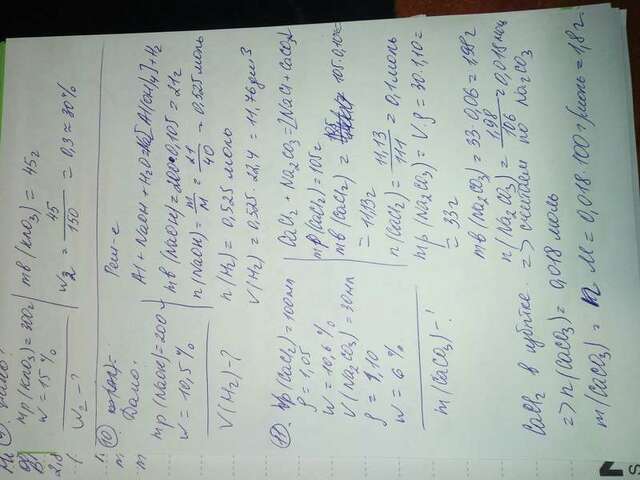 mр(KNO3) = 300г
w = 15%
w2 - ?
mв(KNO3) = 45г
w2 = 45/150 = 0,3 = 30%
10
Дано:
mр(NaOH) = 200г
w = 10,5%
V(H2) - ?
Реш-е
Al + NaOH + H2O = Na[Al(OH)4] + H2
mв(NaOH) = 200·0,105 = 21г
n(NaOH) = m/M = 21/40 = 0,525 моль
n(H2) = 0,525 моль
V(H2) = 0,525·22,4 = 11,76 дм3
11
Vр(CaCl2) = 100мл
ρ = 1,05
w = 10,6%
V(Na2CO3) = 30мл
ρ = 1,10
w = 6%
m(CaCO3) - ?
CaCl2 + Na2CO3 = 2NaCl + CaCO3
mр(CaCl2) = 105г
mв(CaCl2) = 105·0,106 =
= 11,13г
n(CaCl2) = 11,13/111 = 0,1 моль
mр(Na2CO3) = Vρ = 30·1,10 =
= 33г
mв(Na2CO3) = 33·0,06 = 1,98г
n(Na2CO3) = 1,98/106 = 0,018 моль
CaCl2 в избытке => считаем по Na2CO3
=> n(CaCO3) = 0,018 моль
m(CaCO3) = n M = 0,018·100 г/моль = 1,8г